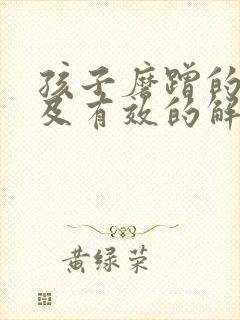 孩子磨蹭的
及有效的解
黄绿荣